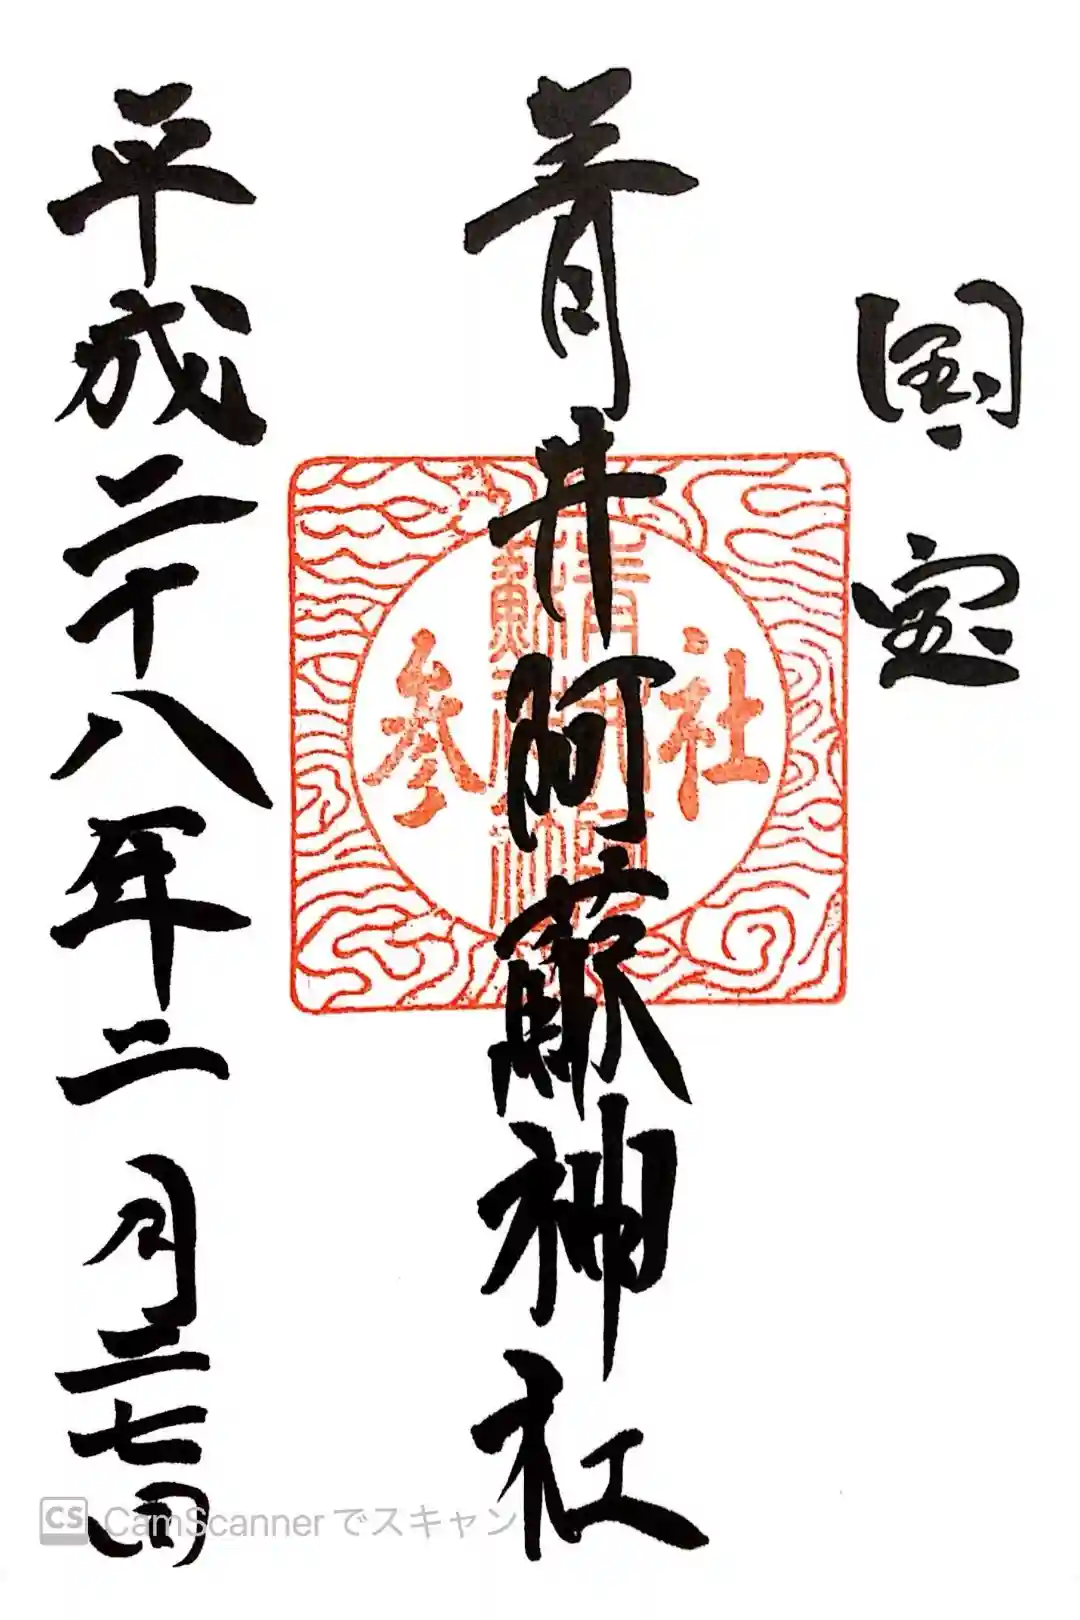 国宝
青井阿蘇神社
社参
平成二十八年二月二七日
CS CamScannerでスキャン